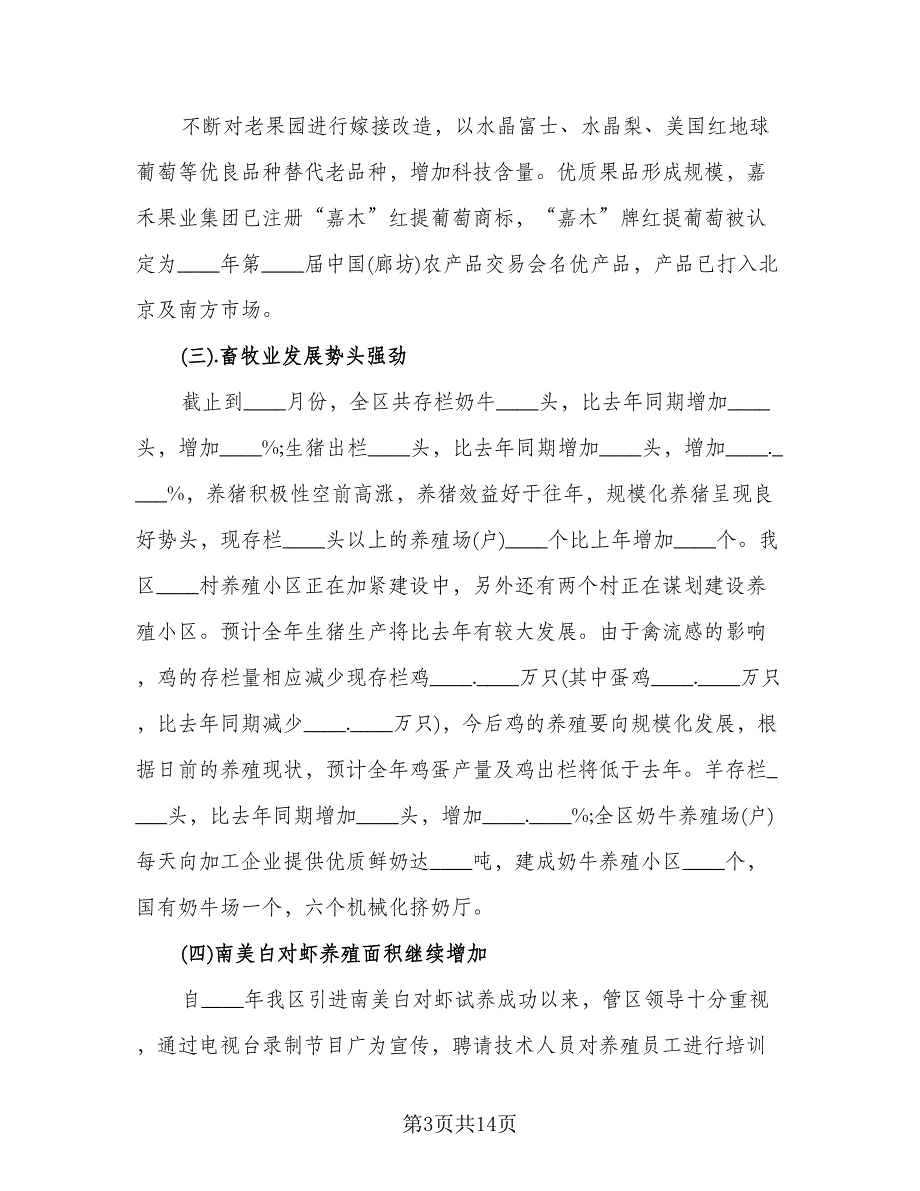 不断对老果园进行嫁接改造，以水晶富士、水晶梨、美国红地球
葡萄等优良品种替代老品种，增加科技含量。优质果品形成规模，嘉
禾果业集团已注册“嘉木”红提葡萄商标，“嘉木”牌红提葡萄被认
定为____年第____届中国(廊坊)农产品交易会名优产品，产品已打入北
京及南方市场。
(三).畜牧业发展势头强劲
截止到____月份，全区共存栏奶牛____头，比去年同期增加____
头，增加____%;生猪出栏____头，比去年同期增加____头，增加____._
___%，养猪积极性空前高涨，养猪效益好于往年，规模化养猪呈现良
好势头，现存栏____头以上的养殖场(户)____个比上年增加____个。我
区____村养殖小区正在加紧建设中，另外还有两个村正在谋划建设养
殖小区。预计全年生猪生产将比去年有较大发展。由于禽流感的影响
，鸡的存栏量相应减少现存栏鸡____.____万只(其中蛋鸡____.____万只
，比去年同期减少____.____万只)，今后鸡的养殖要向规模化发展，根
据日前的养殖现状，预计全年鸡蛋产量及鸡出栏将低于去年。羊存栏_
___头，比去年同期增加____头，增加____.____%;全区奶牛养殖场(户)
每天向加工企业提供优质鲜奶达____吨，建成奶牛养殖小区____个，
国有奶牛场一个，六个机械化挤奶厅。
(四)南美白对虾养殖面积继续增加
自____年我区引进南美白对虾试养成功以来，管区领导十分重视
，通过电视台录制节目广为宣传，聘请技术人员对养殖员工进行培训
第3页共14页